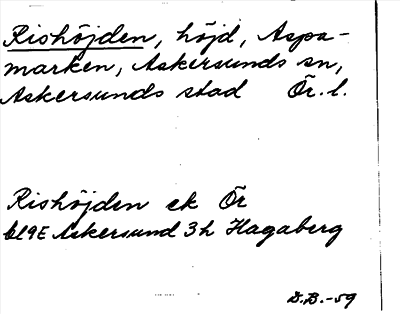 Rishöjden, höjd, Aspa-
marken, Askersunds sn,
Askersunds stad Ör. l.
Rishöjden ek Ör
bl 9E Askersund 3h Hagaberg
D.B.-59